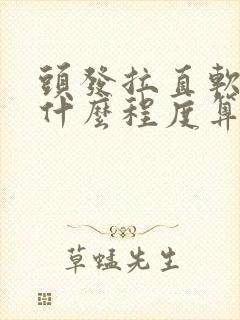 頭發拉直軟
什麼程度算
草蜢先生